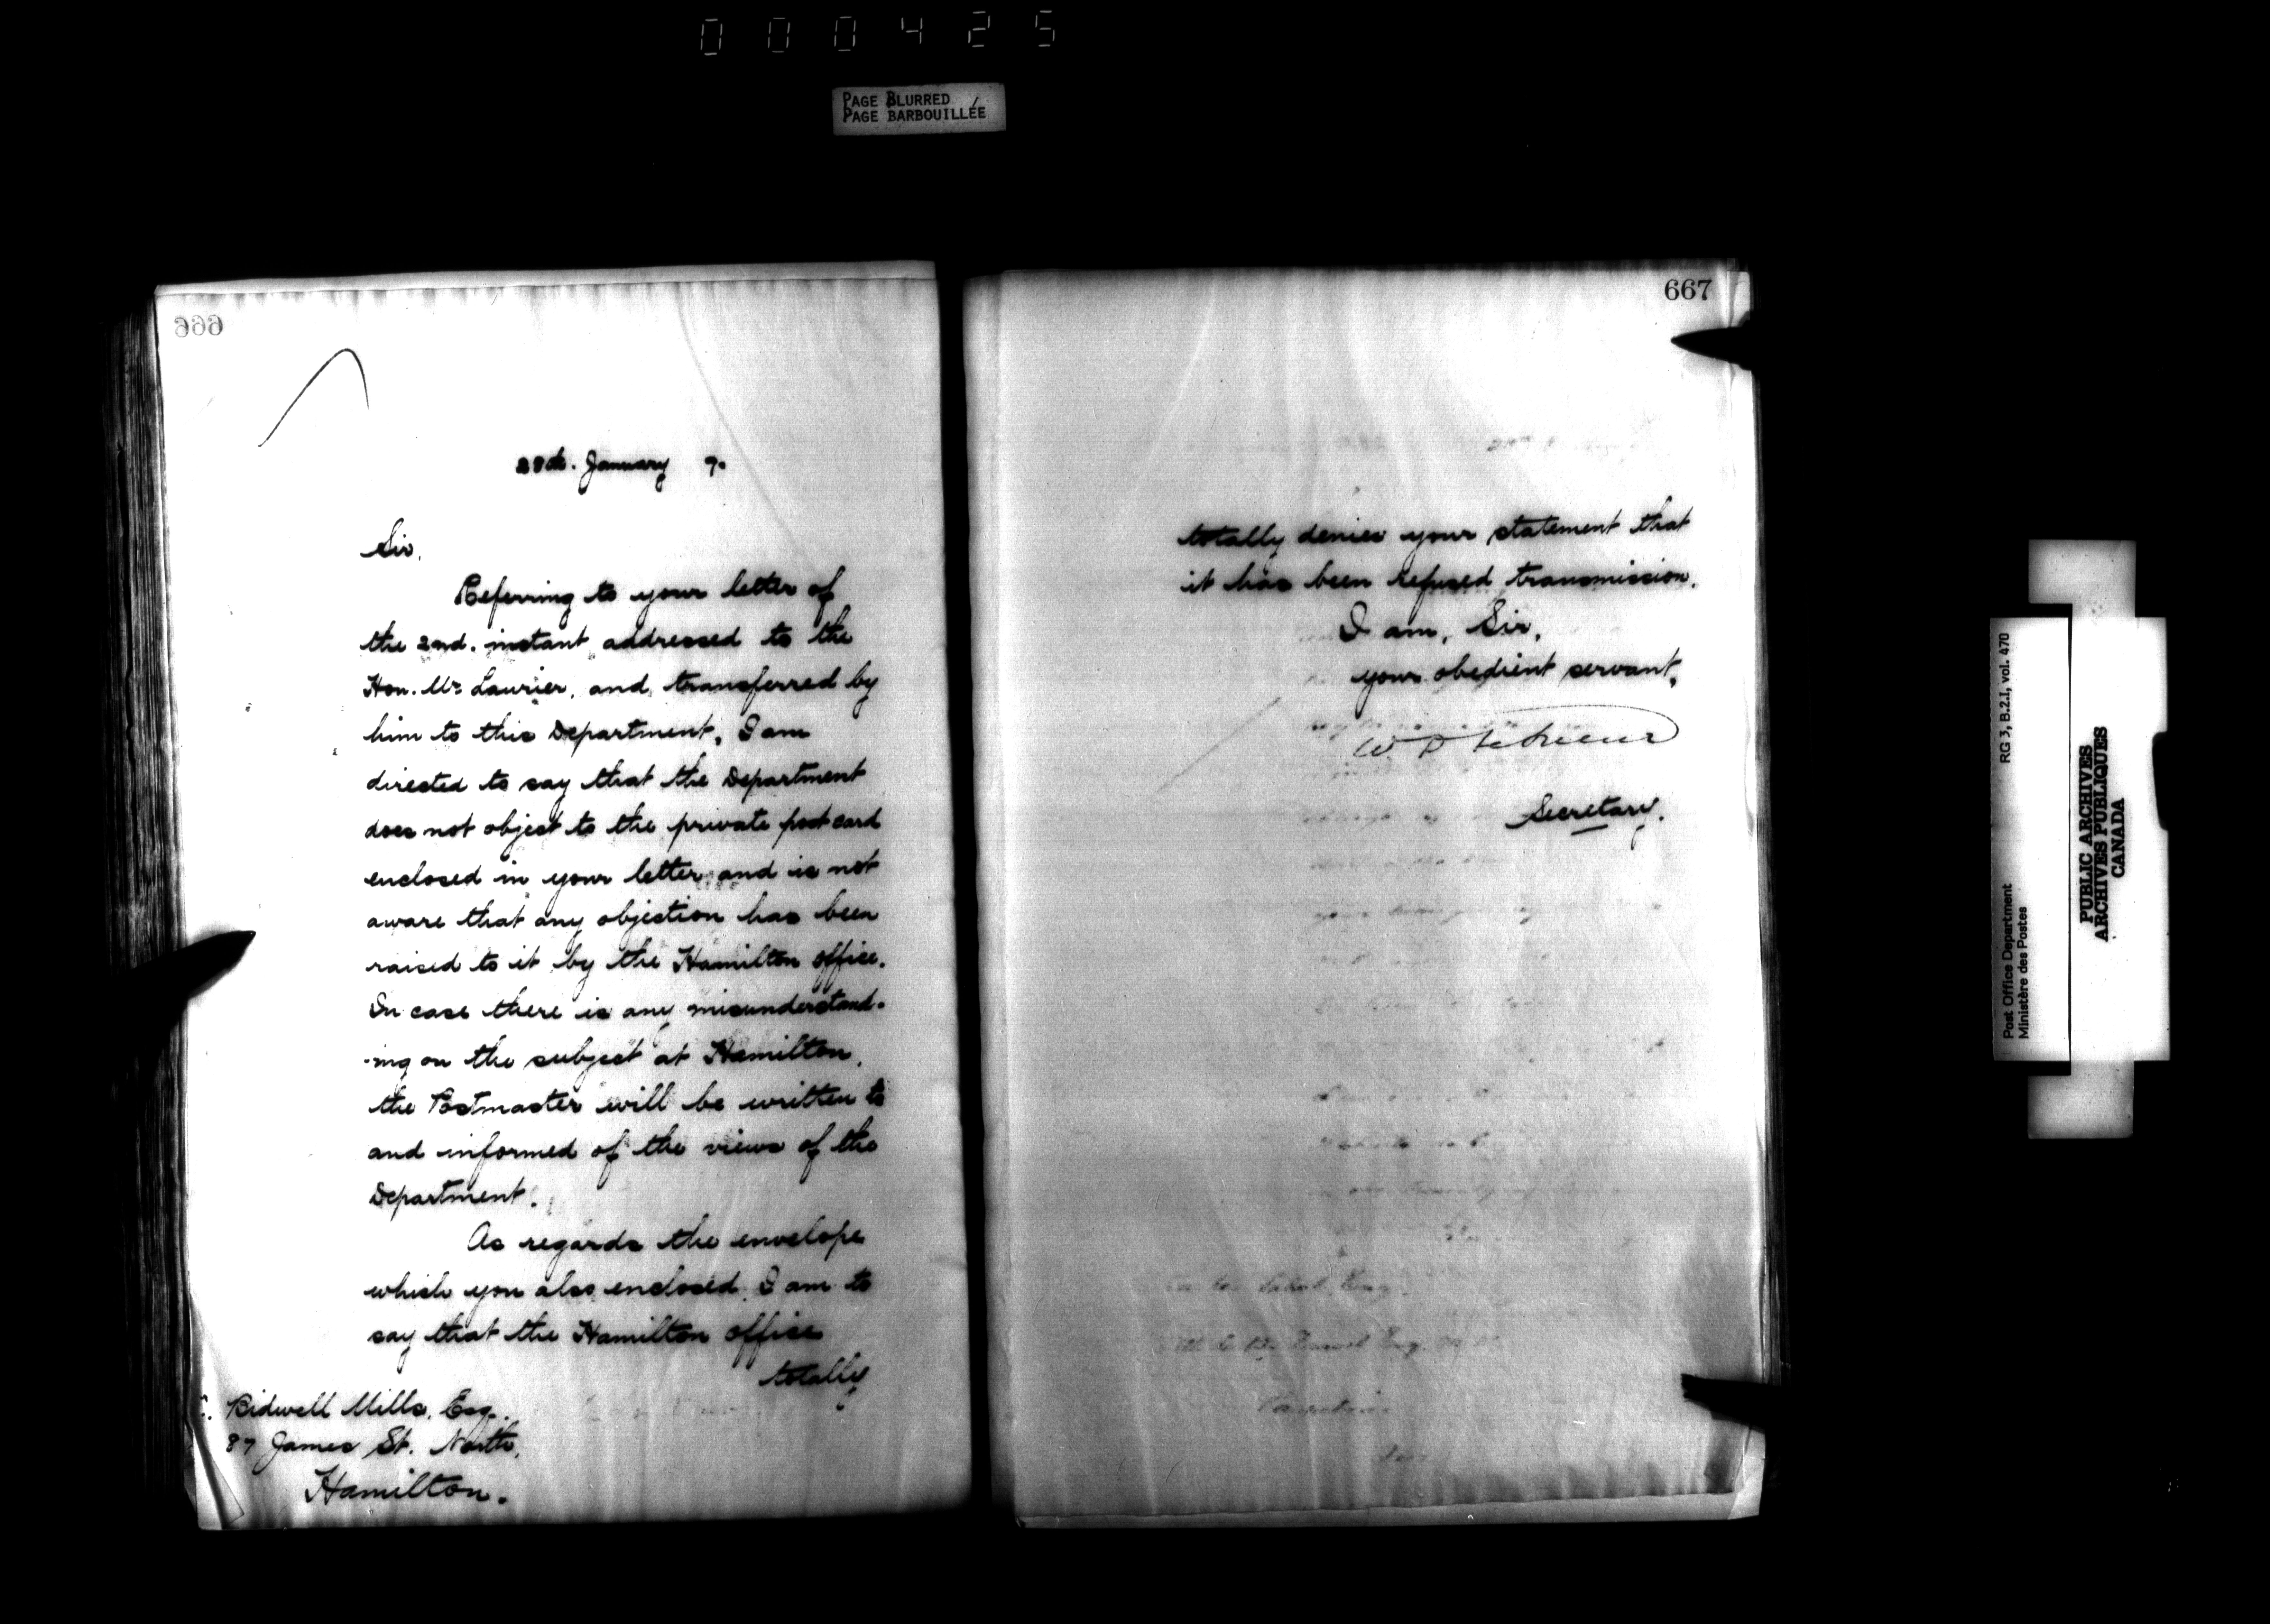 000425
PAGE BLURRED
PAGE BARBOUILLÉE
666
28th. January 7.
Sir,
Referring to your letter of
the 2nd. instant addressed to the
Hon. Mr. Laurier, and transferred by
him to this Department, I am
directed to say that the Department
does not object to the private post card
enclosed in your letter and is not
aware that any objection has been
raised to it by the Hamilton office.
In case there is any misunderstand-
-ing on the subject at Hamilton,
the Postmaster will be written to
and informed of the views of the
Department.
As regards the envelope
which you also enclosed I am to
say that the Hamilton office
totally
C. Bidwell Mills, Esq.
87 James St. North,
Hamilton.
667
totally denies your statement that
it has been refused transmission.
I am, Sir,
your obedient servant,
Secretary.
Post Office Department RG 3, B.2.I, vol. 470
Ministère des Postes
PUBLIC ARCHIVES
ARCHIVES PUBLIQUES
CANADA